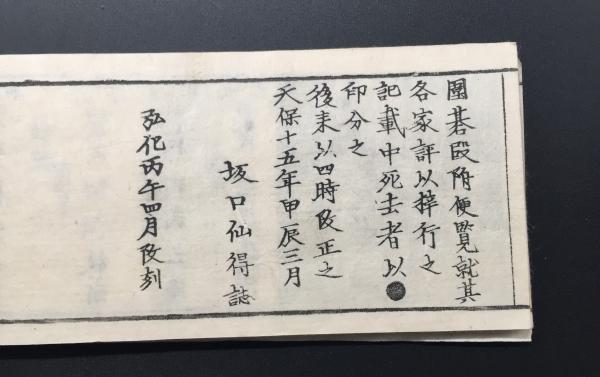 圍碁段附便覽就其
各家評以梓行之
記載中死去者以●
印分之
後来以四時改正之
天保十五年甲辰三月
坂口仙得誌
弘化丙午四月改刻